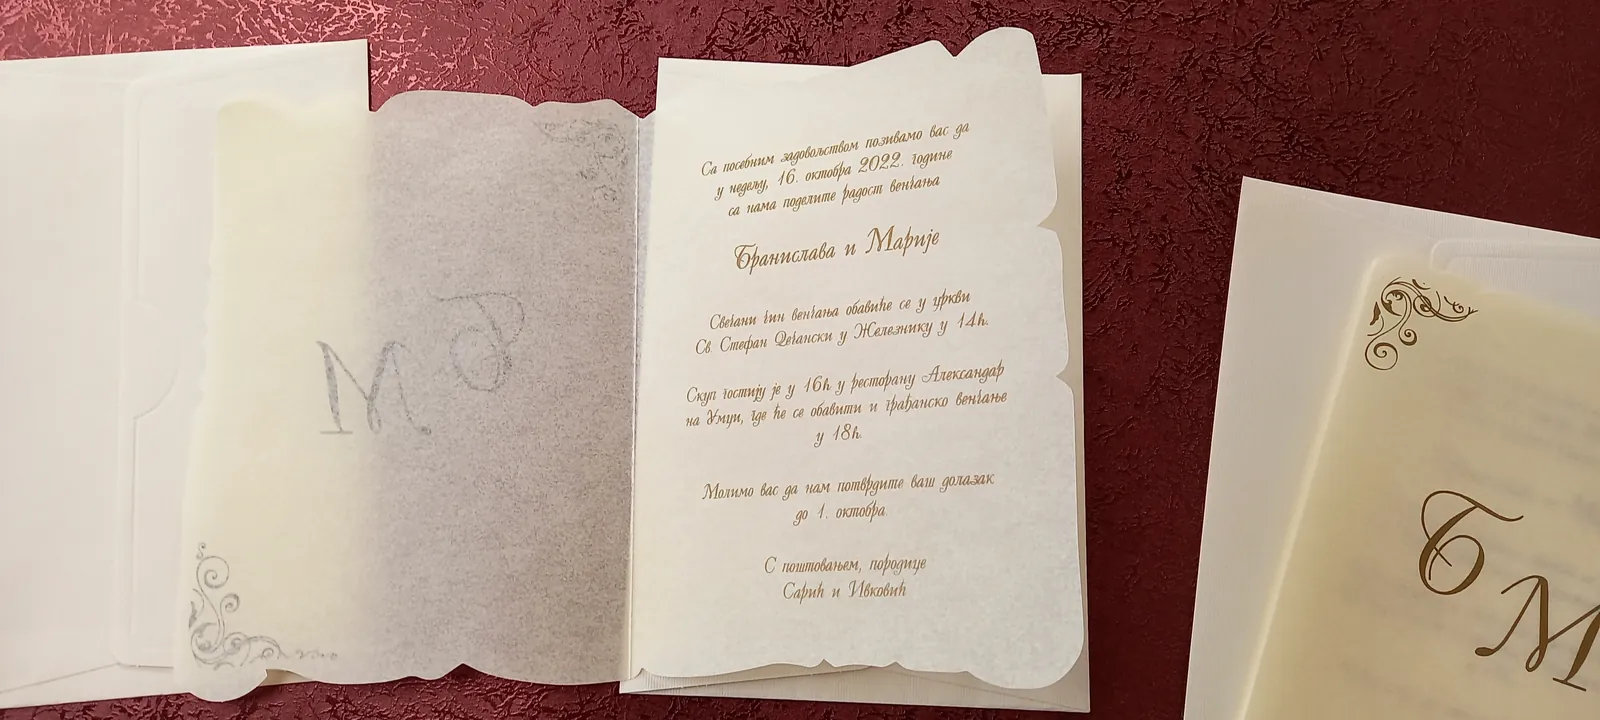 Са посебним задовољством позивамо вас да
у недељу, 16. октобра 2022. године
са нама поделите радост венчања
Бранислава и Марије
Свечани чин венчања обавиће се у цркви
Св. Стефан Дечански у Железнику у 14h.
Скуп гостију је у 16h у ресторану Александар
на Умци, где ће се обавити и грађанско венчање
у 18h.
Молимо вас да нам потврдите ваш долазак
до 1. октобра.
С поштовањем, породице
Сарић и Ивковић
Б
М
Б
М